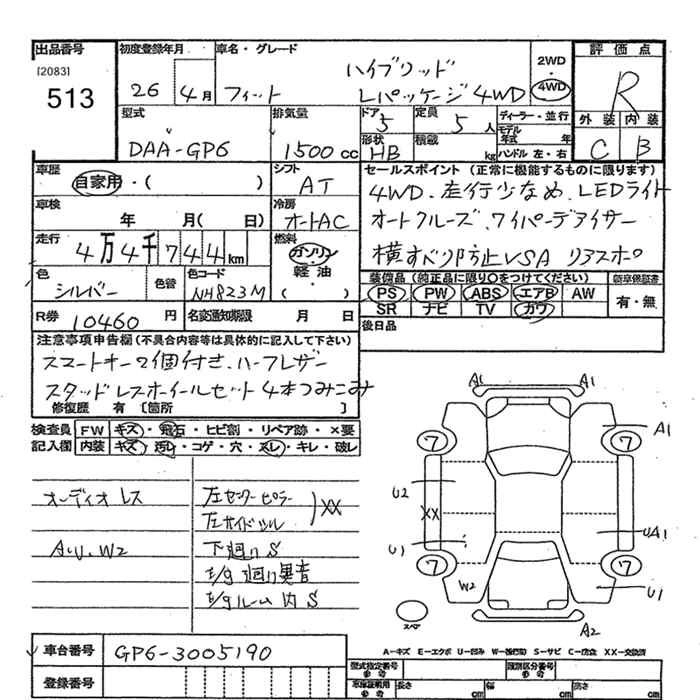 出品番号
[2083]
513
初度登録年月
26 4月
車名・グレード
ハイブリッド
フィット Lパッケージ 4WD
2WD
・
4WD
評価点
R
外装 内装
C B
型式
DAA-GP6
排気量
1500cc
ドア
5
形状
HB
定員
5人
積載
kg
ディーラー・並行
モデル年式 年
ハンドル 左・右
車歴
自家用・( )
シフト
AT
セールスポイント(正常に機能するものに限ります)
4WD.走行少なめ、LEDライト
オートクルーズ、ワイパーデアイサー
横すべり防止VSA リヤスポ
車検
年 月( 日)
冷房
オートAC
走行
4万4千744km
燃料
ガソリン
軽油
・
( )
色
シルバー
色替
色コード
NH823M
装備品(純正品に限り○をつけてください)
PS PW ABS エアB AW
SR ナビ TV カワ
新車保証書
有・無
R券
10460円
名変通知期限 月 日
後日品
注意事項申告欄(不具合内容等は具体的に記入して下さい)
スマートキー2個付き.ハーフレザー
スタッドレスホイールセット4本つみこみ
修復歴 有 [箇所 ]
検査員
記入欄
FW キズ・飛石・ヒビ割・リペア跡・×要
内装 キズ・汚れ・コゲ・穴・スレ・キレ・破レ
オーディオレス
左センターピラー
左サイドシル
XX
AW.W2
下廻りS
E/g廻り異音
E/gルーム内S
A1 A1
A1
ワ ワ
U2
XX
U1
UA1
ワ ワ
W2
U1
スペア
A2
A-キズ E-エクボ U-凹み W-補修跡 S-サビ C-腐食 XX-交換済
車台番号
GP6-3005190
登録番号
型式指定番号
参考
類別区分番号
参考
車庫証明用
参考
長さ cm
幅 cm
高さ cm